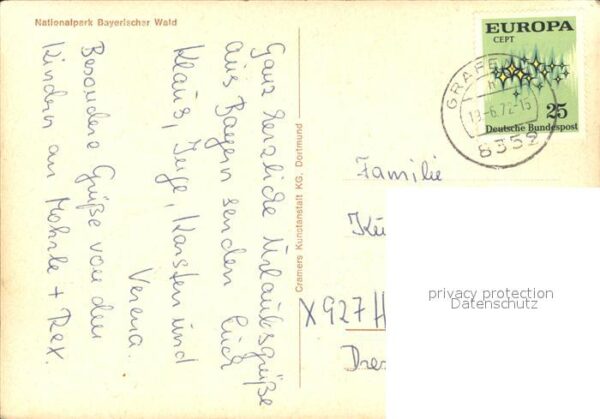 Nationalpark Bayerischer Wald
Ganz herzliche Urlaubsgrüße
aus Bayern senden Euch
Klaus, Inge, Karsten und
Verena.
Besondere Grüße von den
Kindern an Mohrle + Rex.
Cramers Kunstanstalt KG, Dortmund
EUROPA
CEPT
25
Deutsche Bundespost
GRAFE
h
13.-6.72-15
8352
Familie
X927H
privacy protection
Datenschutz